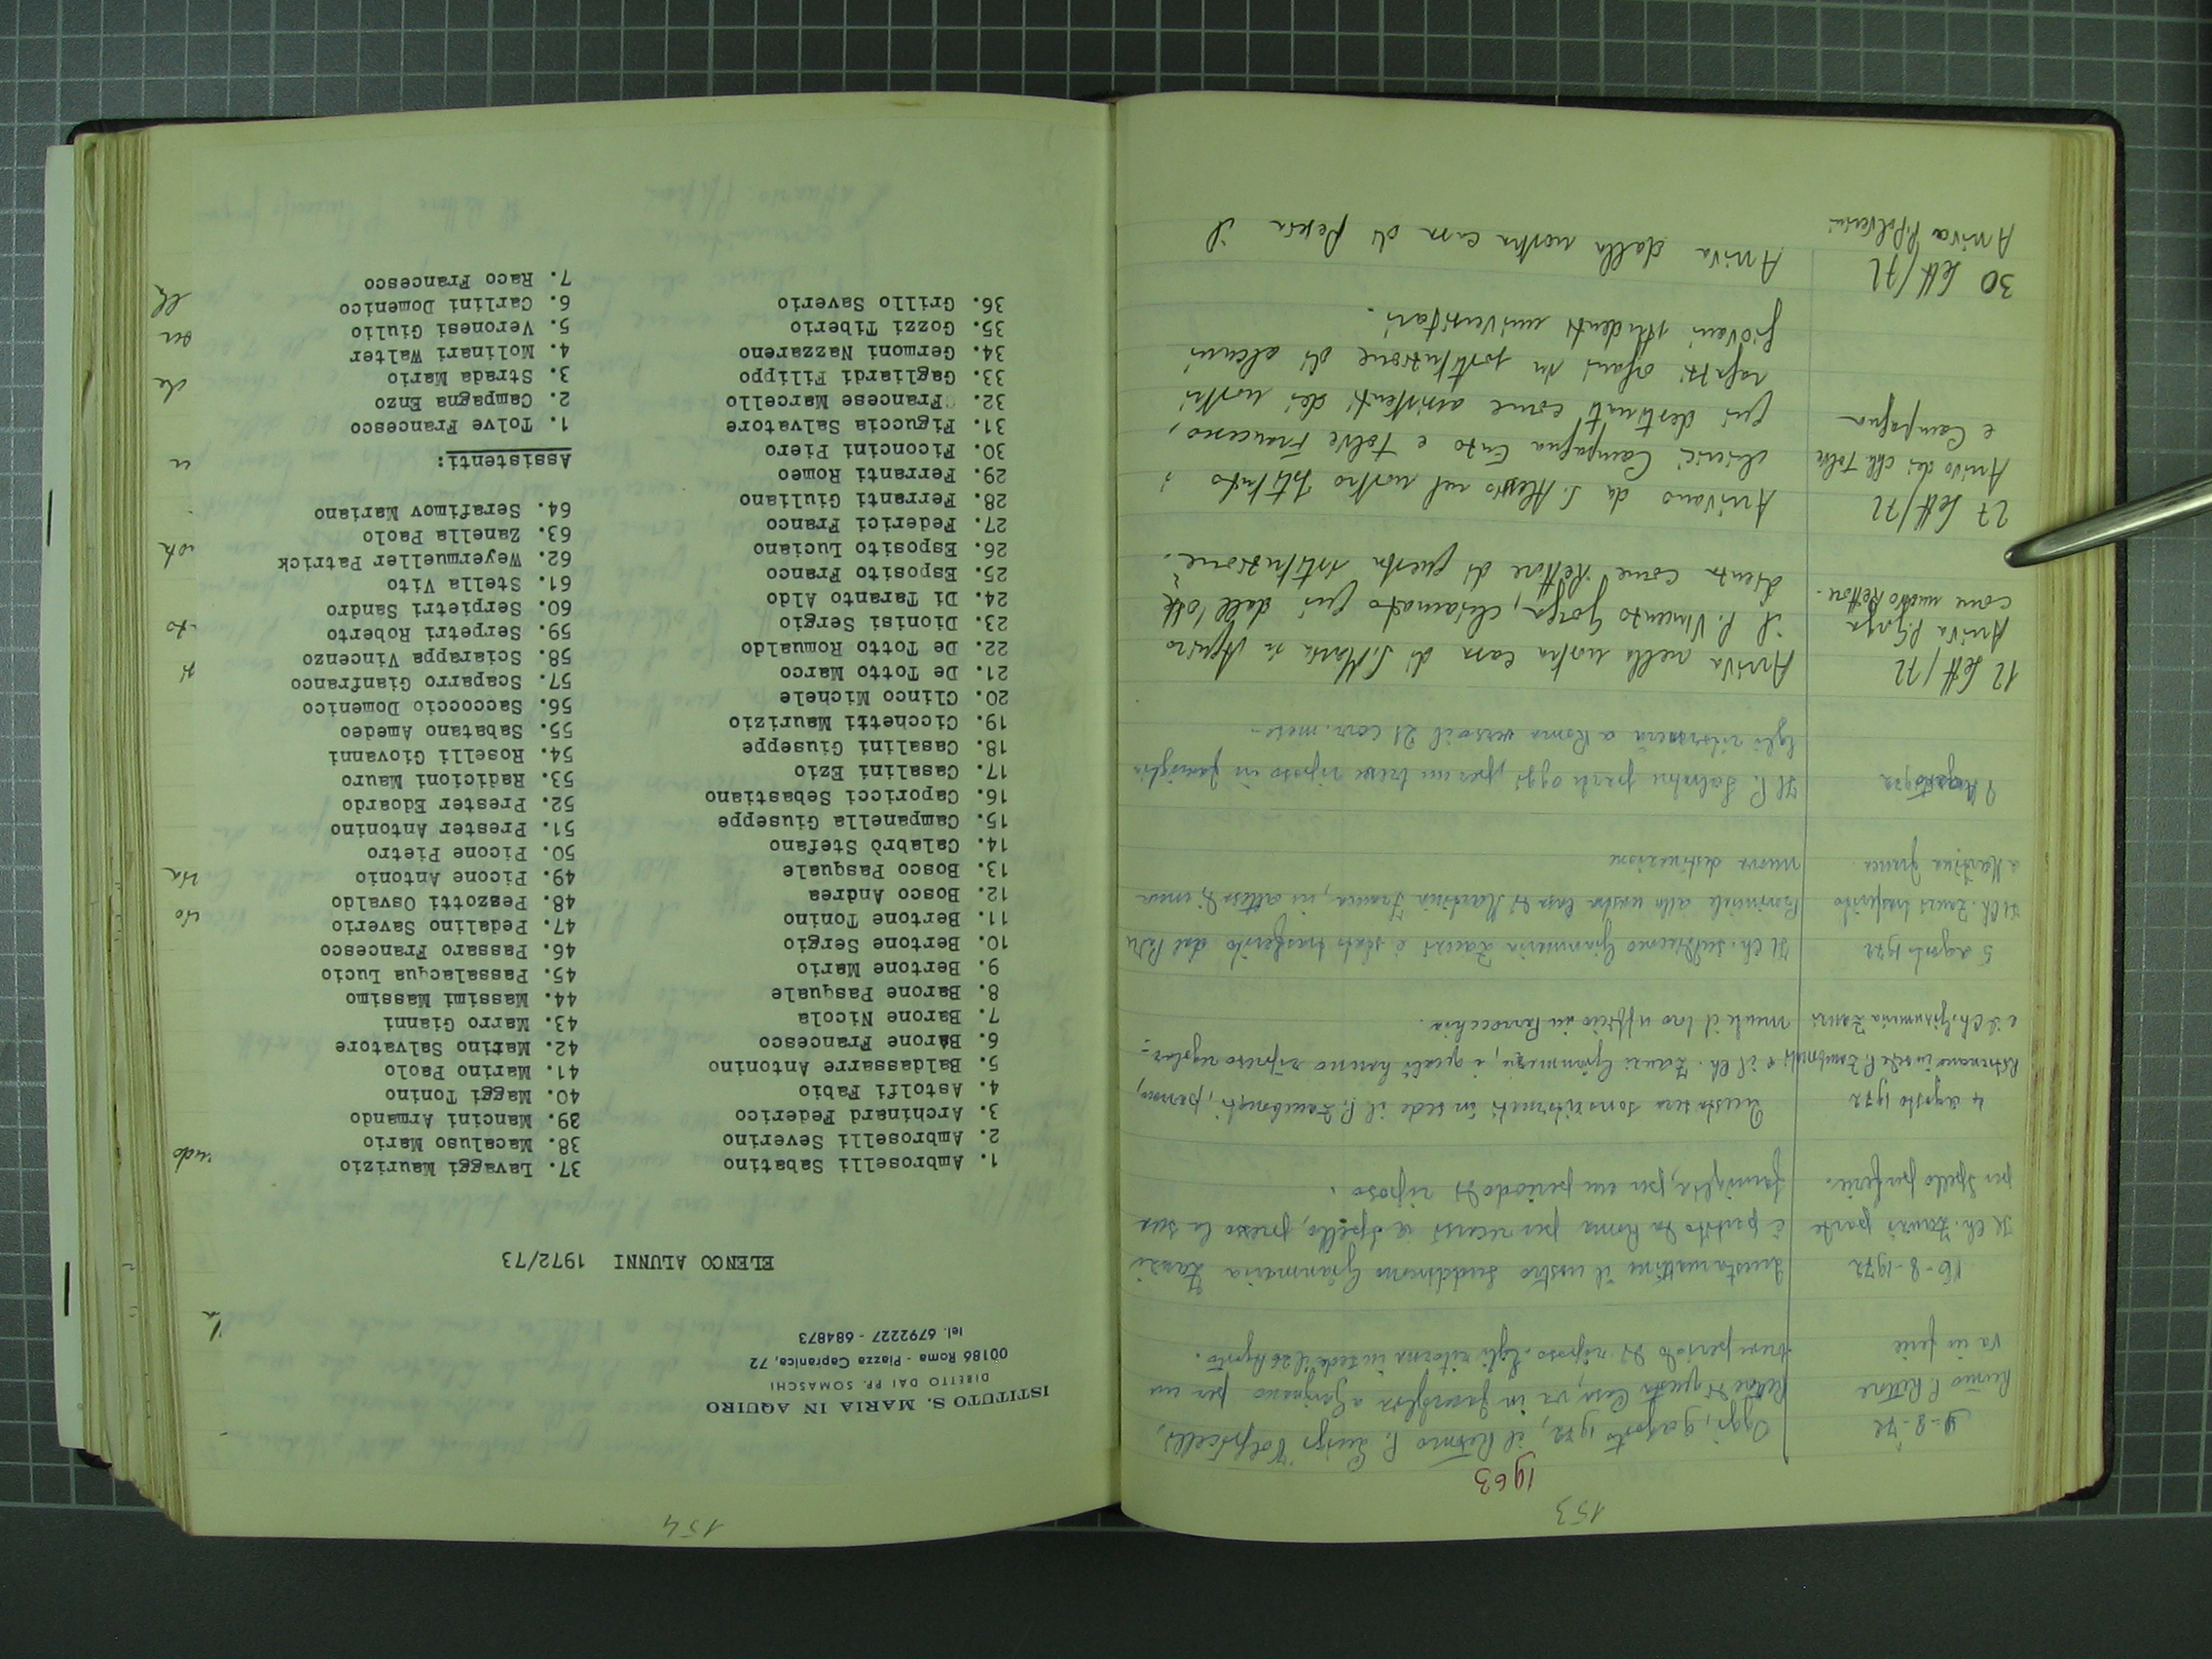 153
1963
9-8-72
Rev.mo P. Rettore
va in ferie
Oggi, 9 agosto 1972, il Rev.mo P. Luigi Volpicelli,
Rettore di questa Casa, va in a per un
breve periodo di riposo. Egli ritorna in sede il 26 Agosto.
16-8-1972
Il Ch. Zauri parte
per Spello per ferie.
Questa mattina il nostro Suddiacono Gianmaria Zauri
è partito da Roma per recarsi a Spello, presso la sua
famiglia, per un periodo di riposo.
4 agosto 1972
Ritornano in sede P. Zambonati
e il Ch. Gianmaria Zauri
Questa sera sono ritornati in sede il P. Zambonati, parroco,
e il Ch. Zauri Gianmaria, i quali hanno ripreso regolar-
mente il loro ufficio in Parrocchia.
5 agosto 1972
Il Ch. Zauri trasferito
a Martina Franca.
Il Ch. Suddiacono Gianmaria Zauri è stato trasferito dal Pdre
Provinciale alla nostra Casa di Martina Franca, in attesa di una
nuova destinazione
9 Agosto 1972
Il P. parte oggi per un breve riposo in famiglia
Egli ritornerà a Roma verso il 21 corr. mese.
12 Sett/72
Arriva P. Gorga
come nuovo Rettore.
Arriva nella nostra casa di S. Maria in Aquiro
il P. Vincenzo Gorga, chiamato qui dall'obbe
dienza come Rettore di questa istituzione.
27 Sett/72
Arrivo dei chh. Tolve
e Campagna
Arrivano da S. Alessio nel nostro Istituto i
chierici Campagna Enzo e Tolve Francesco,
qui destinati come assistenti dei nostri
ragazzi orfani in sostituzione di alcuni
giovani studenti universitari.
30 Sett/72
Arriva P.
Arriva dalla nostra casa di Pescia il
154
ISTITUTO S. MARIA IN AQUIRO
DIRETTO DAI PP. SOMASCHI
00186 Roma - Piazza Capranica, 72
Tel. 6792227 - 684873
ELENCO ALUNNI 1972/73
1. Ambroselli Sabatino
2. Ambroselli Severino
3. Archinard Federico
4. Astolfi Fabio
5. Baldassarre Antonino
6. Barone Francesco
7. Barone Nicola
8. Barone Pasquale
9. Bertone Mario
10. Bertone Sergio
11. Bertone Tonino
12. Bosco Andrea
13. Bosco Pasquale
14. Calabrò Stefano
15. Campanella Giuseppe
16. Caporicci Sebastiano
17. Casalini Ezio
18. Casalini Giuseppe
19. Cicchetti Maurizio
20. Clinco Michele
21. De Totto Marco
22. De Totto Romualdo
23. Dionisi Sergio
24. Di Taranto Aldo
25. Esposito Franco
26. Esposito Luciano
27. Federici Franco
28. Ferranti Giuliano
29. Ferranti Romeo
30. Ficoncini Piero
31. Figuccia Salvatore
32. Francese Marcello
33. Gagliardi Filippo
34. Germoni Nazzareno
35. Gozzi Tiberio
36. Grillo Saverio
37. Lavaggi Maurizio
38. Macaluso Mario
39. Mancini Armando
40. Maggi Tonino
41. Marino Paolo
42. Matino Salvatore
43. Marro Gianni
44. Massimi Massimo
45. Passalacqua Lucio
46. Passaro Francesco
47. Pedalino Saverio
48. Pezzotti Osvaldo
49. Picone Antonio
50. Picone Pietro
51. Prester Antonino
52. Prester Edoardo
53. Radicioni Mauro
54. Roselli Giovanni
55. Sabatano Amedeo
56. Saccoccio Domenico
57. Scaparro Gianfranco
58. Sciarappa Vincenzo
59. Serpetri Roberto
60. Serpietri Sandro
61. Stella Vito
62. Weyermueller Patrick
63. Zanella Paolo
64. Serafimov Mariano
Assistenti:
1. Tolve Francesco
2. Campagna Enzo
3. Strada Mario
4. Molinari Walter
5. Veronesi Giulio
6. Carlini Domenico
7. Raco Francesco